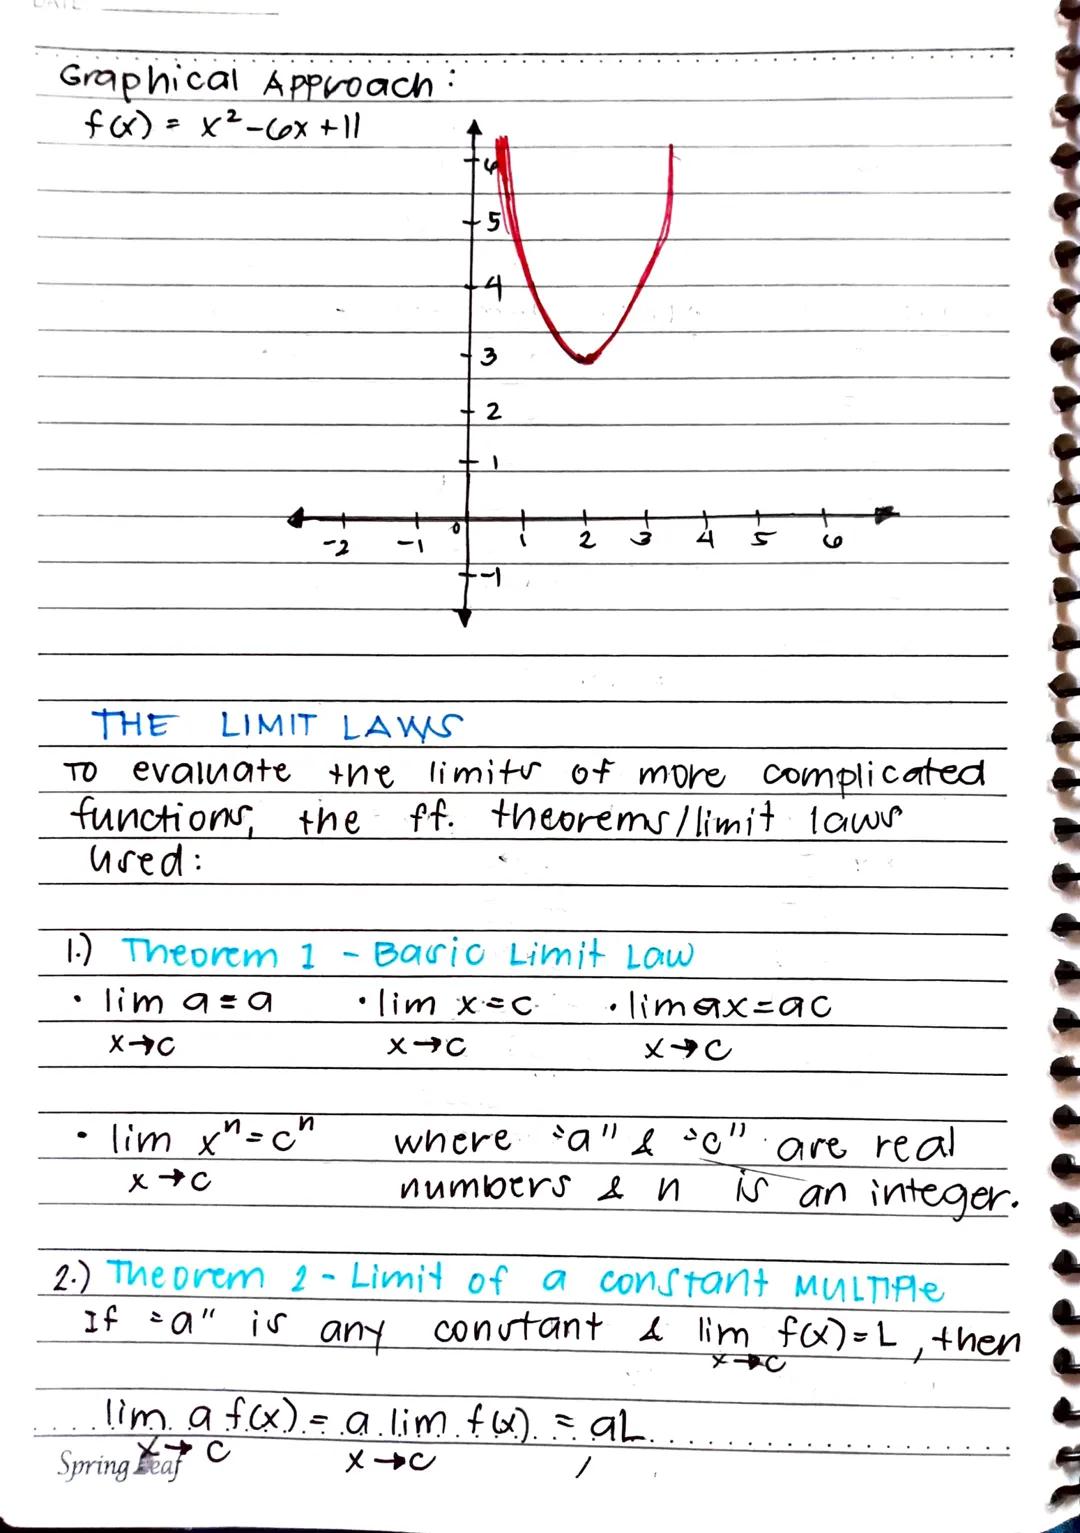 DATE
Graphical Approach:
f(x) = x² - 6x + 11
6
5
4
3
2
1
-2 -1 0 1 2 3 4 5 6
-1
THE LIMIT LAWS
To evaluate the limits of more complicated
functions, the ff. theorems/limit laws
used:
1.) Theorem 1 - Basic Limit Law
• lim a = a • lim x = c • lim ax = ac
x→c x→c x→c
• lim xⁿ = cⁿ where "a" & "c" are real
x→c numbers & n is an integer.
2.) Theorem 2 - Limit of a constant MULTIPle
If "a" is any constant & lim f(x) = L, then
x→c
lim a f(x) = a lim f(x) = aL
x→c x→c
Spring Leaf